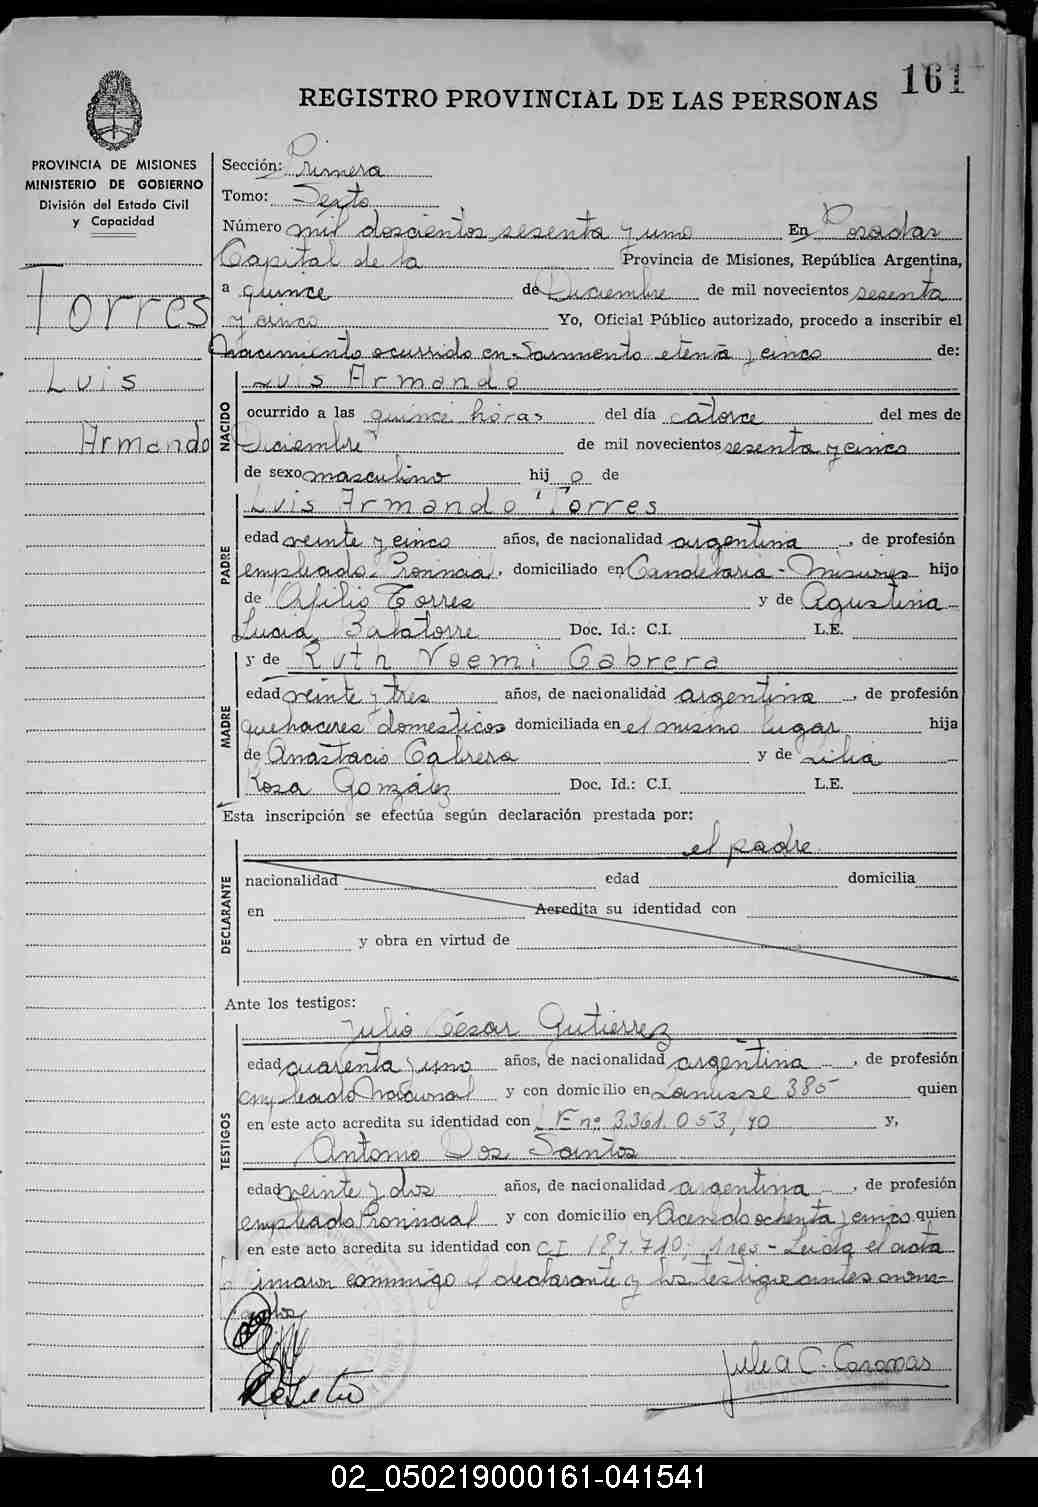 161
REGISTRO PROVINCIAL DE LAS PERSONAS
PROVINCIA DE MISIONES
MINISTERIO DE GOBIERNO
División del Estado Civil
y Capacidad
Torres
Luis
Armando
Sección: Primera
Tomo: Sexto
Número mil doscientos sesenta y uno En Posadas
Capital de la Provincia de Misiones, República Argentina,
a quince de Diciembre de mil novecientos sesenta
y cinco Yo, Oficial Público autorizado, procedo a inscribir el
nacimiento ocurrido en Sarmiento y cinco de:
NACIDO
Luis Armando
ocurrido a las quince horas del día catorce del mes de
Diciembre de mil novecientos sesenta y cinco
de sexo masculino hij o de
PADRE
Luis Armando Torres
edad veinte y cinco años, de nacionalidad argentina, de profesión
empleado Provincial, domiciliado en Candelaria - Misiones hijo
de Torres y de Agustina
Lucia Doc. Id.: C.I. L.E.
y de Ruth Noemi Cabrera
MADRE
edad veinte y tres años, de nacionalidad argentina, de profesión
quehaceres domesticos domiciliada en el mismo lugar hija
de Anastacio Cabrera y de Lilia
Rosa González Doc. Id.: C.I. L.E.
Esta inscripción se efectúa según declaración prestada por:
el padre
DECLARANTE
nacionalidad edad domicilia
en Acredita su identidad con
y obra en virtud de
Ante los testigos:
TESTIGOS
Julio César Gutiérrez
edad cuarenta y uno años, de nacionalidad argentina, de profesión
empleado Nacional y con domicilio en Lanusse 385 quien
en este acto acredita su identidad con L E nº 3.361.053, y,
Antonio Dos Santos
edad veinte y dos años, de nacionalidad argentina, de profesión
empleado Provincial y con domicilio en Acevedo ochenta y cinco quien
en este acto acredita su identidad con C I 187.710; Leida el acta
firman conmigo el declarante y los testigos antes nom-
brados
Julia C. Coronas
02_050219000161-041541